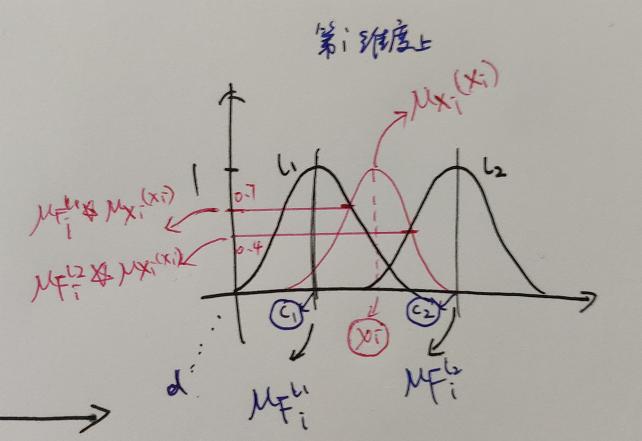 第i维度上
μXi(xi)
1
L1
L2
0.7
μFi^L1 ☆ μXi(xi)
0.4
μFi^L2 ☆ μXi(xi)
C1
xi
C2
d
μFi^L1
μFi^L2